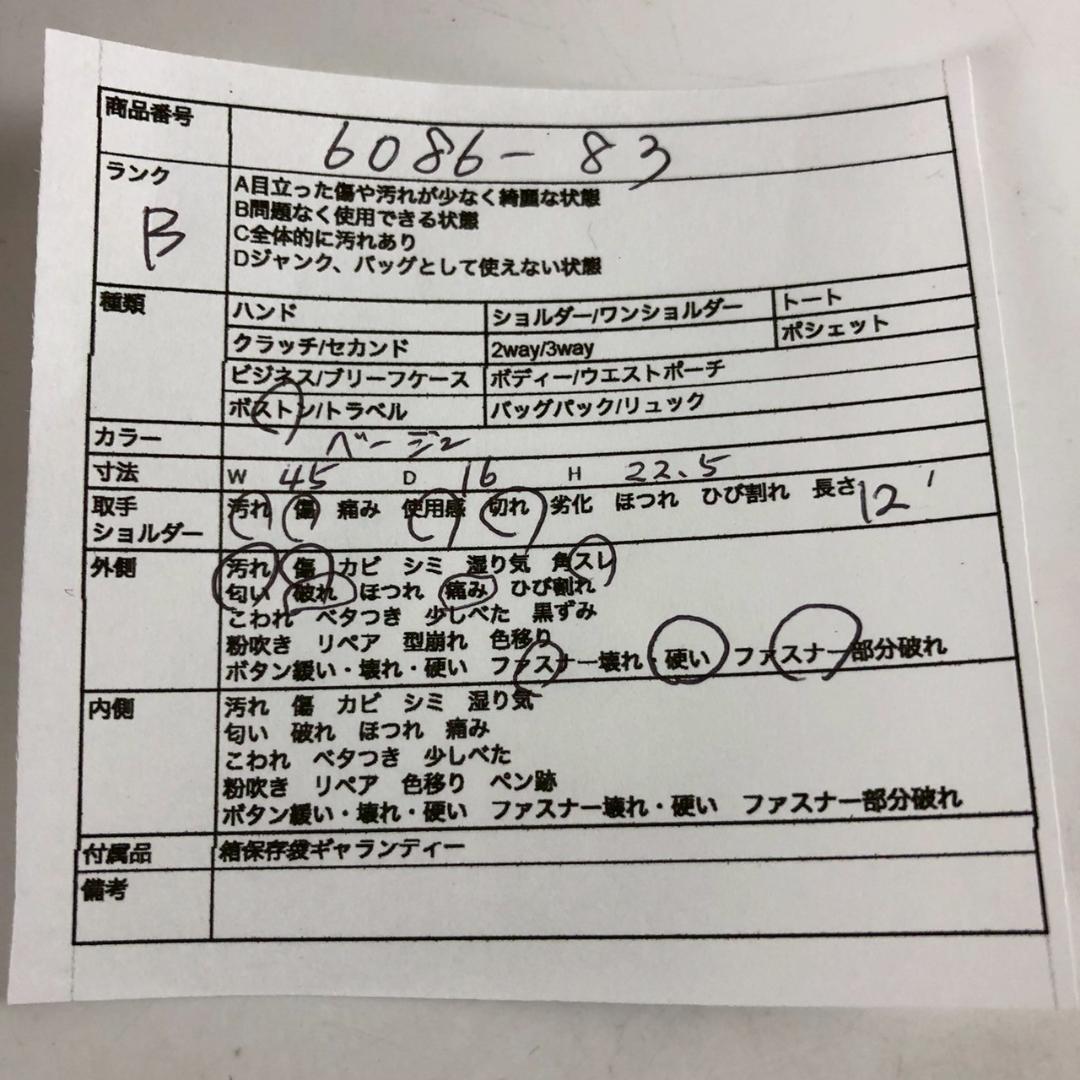 商品番号 6086-83
ランク B
A目立った傷や汚れが少なく綺麗な状態
B問題なく使用できる状態
C全体的に汚れあり
Dジャンク、バッグとして使えない状態
種類 ハンド ショルダー/ワンショルダー トート
クラッチ/セカンド 2way/3way ポシェット
ビジネス/ブリーフケース ボディー/ウエストポーチ
ボストン/トラベル バッグパック/リュック
カラー ベージュ
寸法 W 45 D 16 H 22.5
取手 汚れ 傷 痛み 使用感 切れ 劣化 ほつれ ひび割れ 長さ 12
ショルダー
外側 汚れ 傷 カビ シミ 湿り気 角スレ
匂い 破れ ほつれ 痛み ひび割れ
こわれ ベタつき 少しべた 黒ずみ
粉吹き リペア 型崩れ 色移り
ボタン緩い・壊れ・硬い ファスナー壊れ・硬い ファスナー部分破れ
内側 汚れ 傷 カビ シミ 湿り気
匂い 破れ ほつれ 痛み
こわれ ベタつき 少しべた
粉吹き リペア 色移り ペン跡
ボタン緩い・壊れ・硬い ファスナー壊れ・硬い ファスナー部分破れ
付属品 箱保存袋ギャランティー
備考